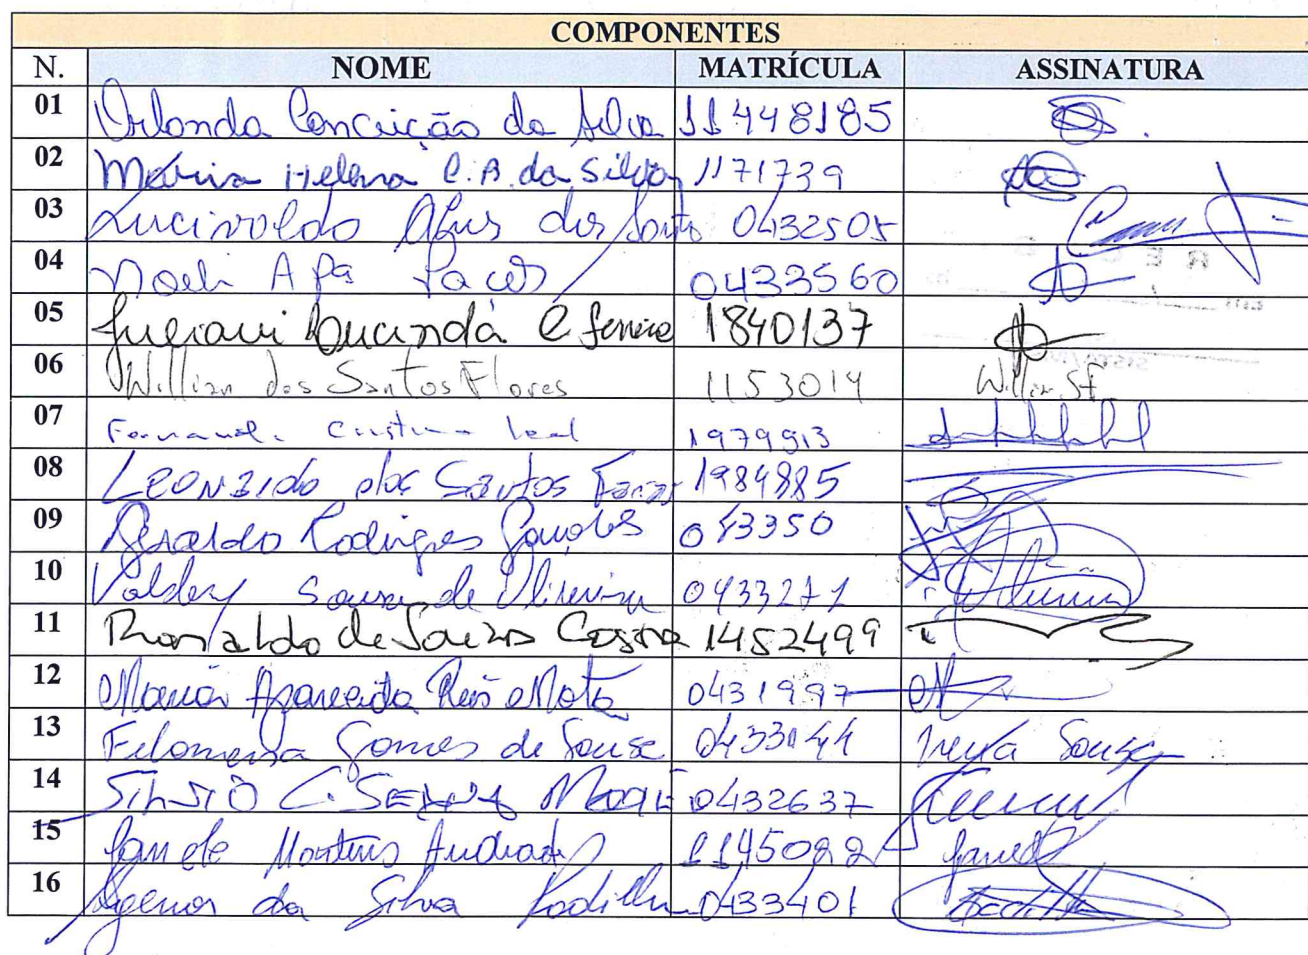 COMPONENTES
N. NOME MATRÍCULA ASSINATURA
01 Orlanda Conceição da Silva 11448185
02 Maria Helena C. A. da Silva 1171739
03 Lucivaldo Alves dos Santos 0432505
04 Noeli Ap 0433560
05 C Ferreira 1840137
06 Willian dos Santos Flores 1153014 Willian SF
07 Fernanda Cristina Leal 1979913
08 Leonzido dos Santos 1984885
09 Geraldo Rodrigues 043350
10 Valdery Souza de Oliveira 0433271
11 Ronaldo de Souza Costa 1452499
12 Maria Aparecida Reis Mota 0431997
13 Filomena Gomes de Sousa 0433044 Sousa
14 Silvio C. 0432637
15 Janete Martins Andrade 1145022 Janete
16 Agenor da Silva Padilha 0433401 Padilha